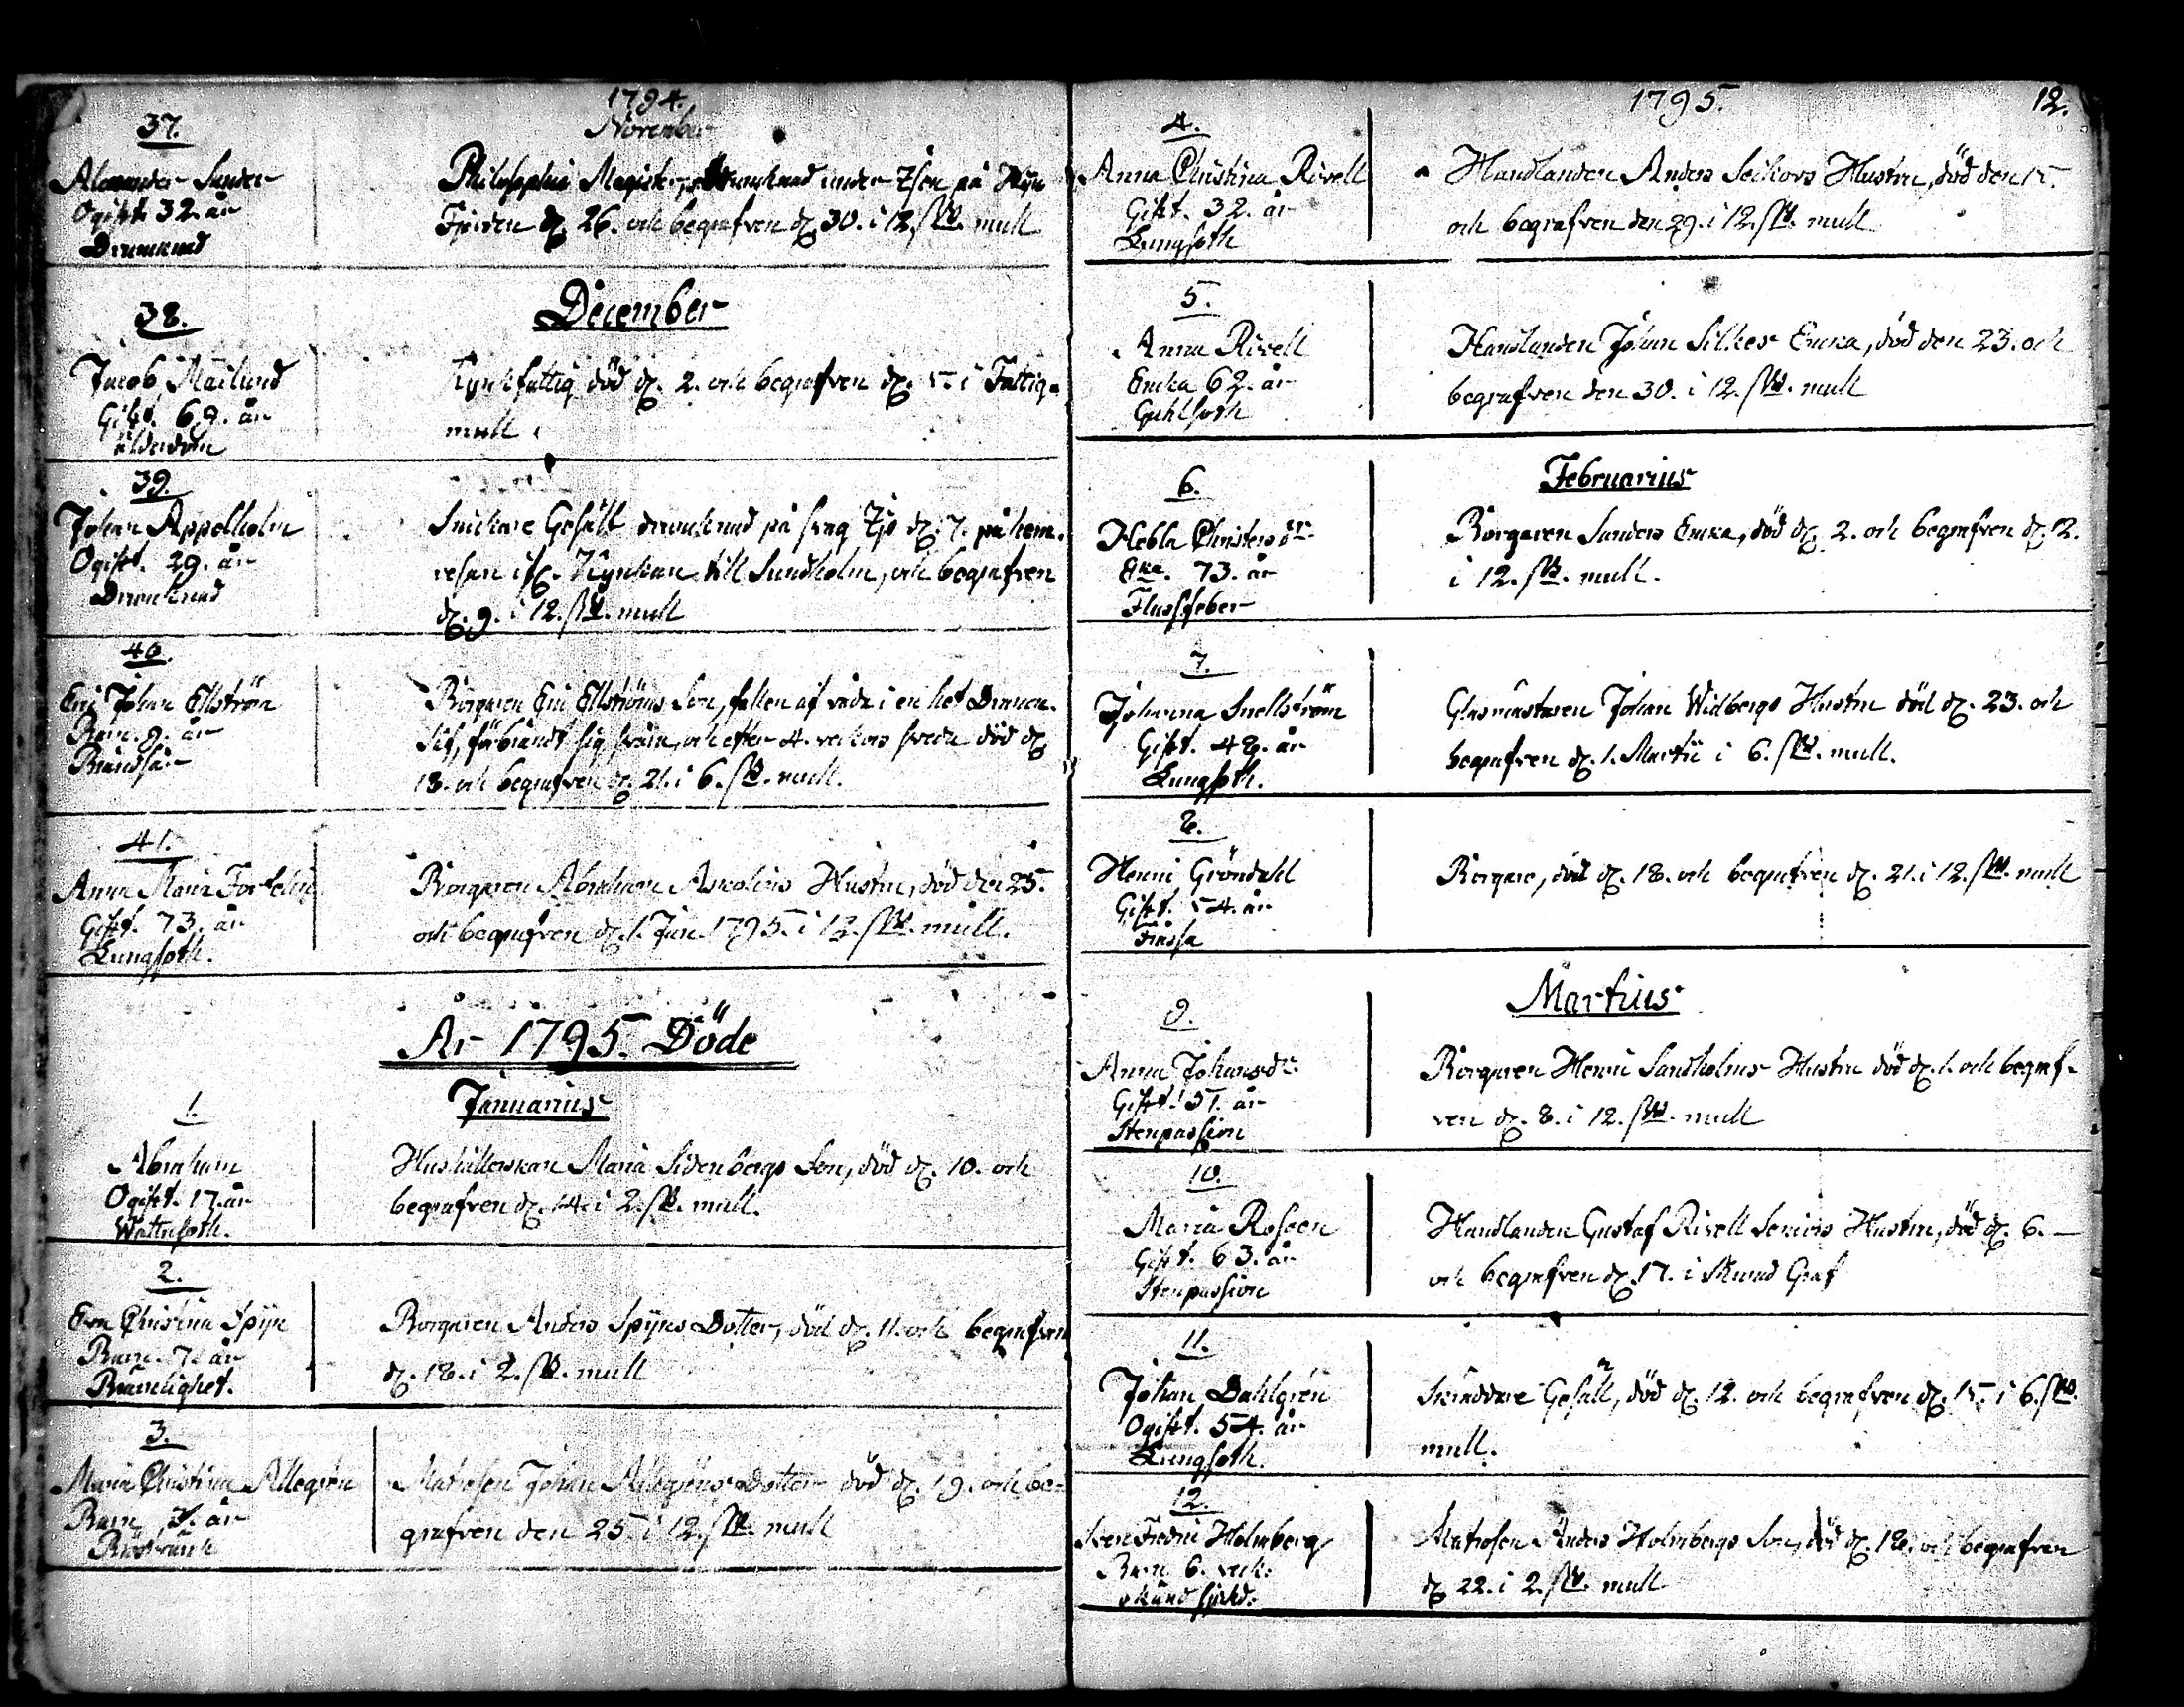 1794.
November
37.
Alexander Sunder
Ogift 32. år
Drunknad
Philosophiæ Magister, drunknad under Isen på
Fjerden d. 26. och begrafven d. 30. i 12. sk. mull
December
38.
Jacob Mailund
Gift. 69. år
ålderdom
Kyrkfattig död d. 2. och begrafven d. 5. i Fattig-
mull
39.
Johan Appelholm
Ogift. 29. år
Drunknad
Snickare Gesäll drunknad på svag Is d. 7. på hem-
resan ifr. Kyrkan till Sundholm, och begrafven
d. 9. i 12. sk. mull
40.
Eric Johan Ellström
Barn. 9. år
Brandsår
Borgaren Eric Ellströms Son, fallen af våda i en het
förbrändt sig svåra, och efter 4. veckors sveda död d.
18. och begrafven d. 21. i 6. sk. mull.
41.
Anna Maria
Gift. 73. år
Lungsoth.
Borgaren Abraham Hustru, död den 25.
och begrafven d. 1. Jan. 1795. i 12. sk. mull.
År 1795. Döde
Januarius
1.
Abraham
Ogift. 17. år
Wattusoth.
Hushållerskan Maria Sidenbergs Son, död d. 10. och
begrafven d. 14. i 2. sk. mull.
2.
Eva Christina Spijn
Barn. 7. år
Bråcklighet.
Borgaren Anders Spijns Dotter, död d. 11. och begrafven
d. 18. i 2. sk. mull
3.
Maria Christina Allegrén
Barn. 3. år
Matrosen Johan Allegréns Dotter död d. 19. och be-
grafven den 25. i 12. sk. mull
1795.
12.
4.
Anna Christina Rivell
Gift. 32. år
Lungsoth
Handlanden Anders Hustru, död den 15.
och begrafven den 29. i 12. sk. mull
5.
Anna Rivell
Encka 62. år
Guhlsoth
Handlanden Johan Silkes Encka, död den 23. och
begrafven den 30. i 12. sk. mull
Februarius
6.
Hebla Christersdr.
Eka. 73. år
Flussfeber
Borgaren Sunders Encka, död d. 2. och begrafven d. 12.
i 12. sk. mull.
7.
Johanna Snellström
Gift. 48. år
Lungsoth.
Glasmästaren Johan Widbergs Hustru död d. 23. och
begrafven d. 1. Martii i 6. sk. mull.
8.
Henric Gröndahl
Gift. 54. år
Frässa
Borgare, död d. 18. och begrafven d. 21. i 12. sk. mull
Martius
9.
Anna Johansdr.
Gift. 51. år
Stenpassion
Borgaren Henric Sandholms Hustru död d. 1. och begraf-
ven d. 8. i 12. sk. mull
10.
Maria Roseen
Gift. 63. år
Stenpassion
Handlanden Gustaf Rivell Seniors Hustru, död d. 6.
och begrafven d. 17. i Murad Graf
11.
Johan Dahlgrén
Ogift. 54. år
Lungsoth.
Skräddare Gesäll, död d. 12. och begrafven d. 15. i 6. sk.
mull.
12.
Sven Fredric Holmberg
Barn 6. veck.
okänd sjukd.
Matrosen Anders Holmbergs Son, död d. 18. och begrafven
d. 22. i 2. sk. mull